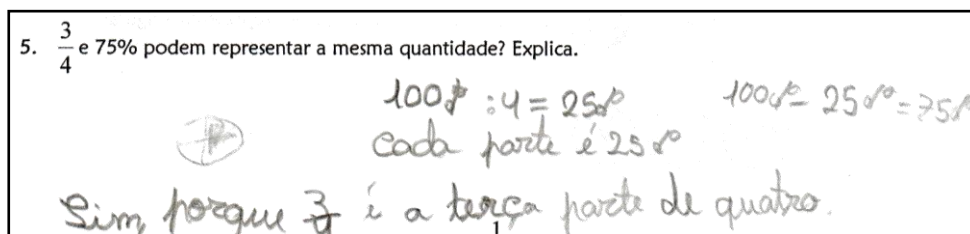 5. 3/4 e 75% podem representar a mesma quantidade? Explica.
100% : 4 = 25% 100% - 25% = 75%
cada parte é 25%
Sim, porque 3/4 é a terça parte de quatro.
1